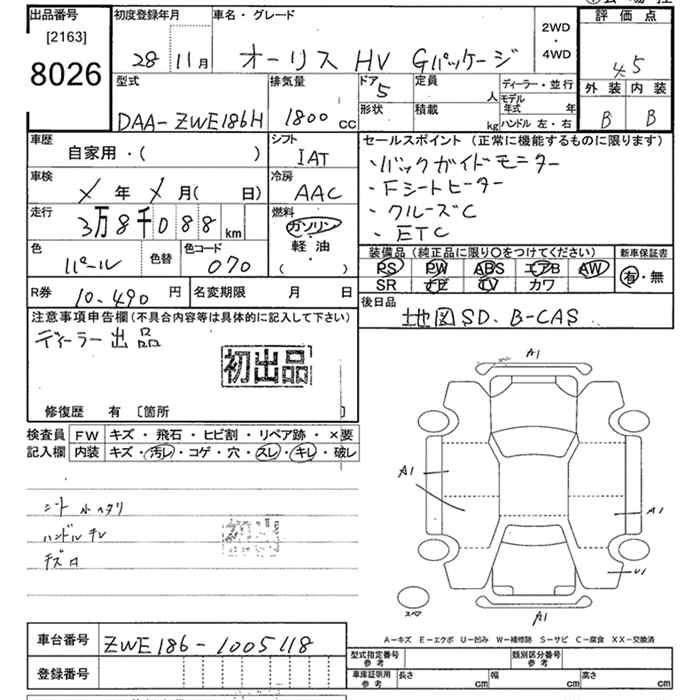 出品番号 初度登録年月 車名・グレード 2WD・4WD 評価点
[2163]
8026 28 11月 オーリス HV Gパッケージ 4.5
型式 排気量 ドア 5 定員 人 ディーラー・並行 外装 内装
DAA-ZWE186H 1800cc 形状 積載 kg モデル年式 年 ハンドル 左・右 B B
車歴 シフト セールスポイント(正常に機能するものに限ります)
自家用・( ) IAT ・バックガイドモニター
車検 冷房 ・Fシートヒーター
メ 年 メ 月( 日) AAC ・クルーズC
走行 燃料 ・ETC
3万8千088 km ガソリン
軽油・( )
色 色替 色コード 装備品(純正品に限り○をつけてください) 新車保証書
パール 070 PS PW ABS エアB AW 有・無
SR ナビ TV カワ
R券 10.490 円 名変期限 月 日 後日品
地図SD、B-CAS
注意事項申告欄(不具合内容等は具体的に記入して下さい)
ディーラー出品
初出品
修復歴 有 〔箇所 〕
検査員 FW キズ・飛石・ヒビ割・リペア跡・×要
記入欄 内装 キズ・汚レ・コゲ・穴・スレ・キレ・破レ
A1
A1
A1
シート 小ヘタリ
ハンドルキレ
初出
U1
スペア
A1
車台番号 ZWE186-1005118
登録番号
A−キズ E−エクボ U−凹み W−補修跡 S−サビ C−腐食 XX−交換済
型式指定番号 参考 類別区分番号 参考
車庫証明用 参考 長さ cm 幅 cm 高さ cm